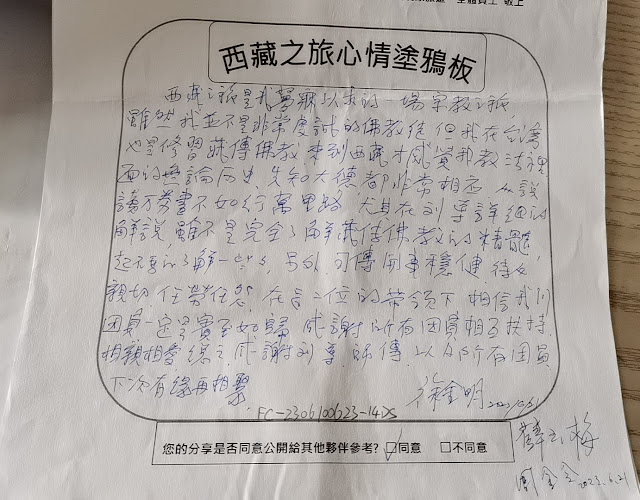 全體員工 敬上
西藏之旅心情塗鴉板
西藏之旅是我夢寐以求的一場宗教之旅,
雖然我並不是非常虔誠的佛教徒 但我在台灣
也是修習藏傳佛教 來到西藏才感覺我教法裡
面的 論 歷史 先知大德都非常相 
讀万券書不如行萬里路 尤其在刘導詳細的
解說 雖不是完全了解藏傳佛教的精髓
起 的了解一些些 另外 司傅開車穩健 待人
親切 任勞任怨 在 二位的带领下 相信我們
团員一定是賓至如歸 感謝所有团員相互扶持
相親相愛 總之感謝刘導 師傅 以及所有团員
下次有緣再相聚
徐金明
FC-2306100623-14DS
您的分享是否同意公開給其他夥伴參考? ☑同意 □不同意
梅
2023.6.21